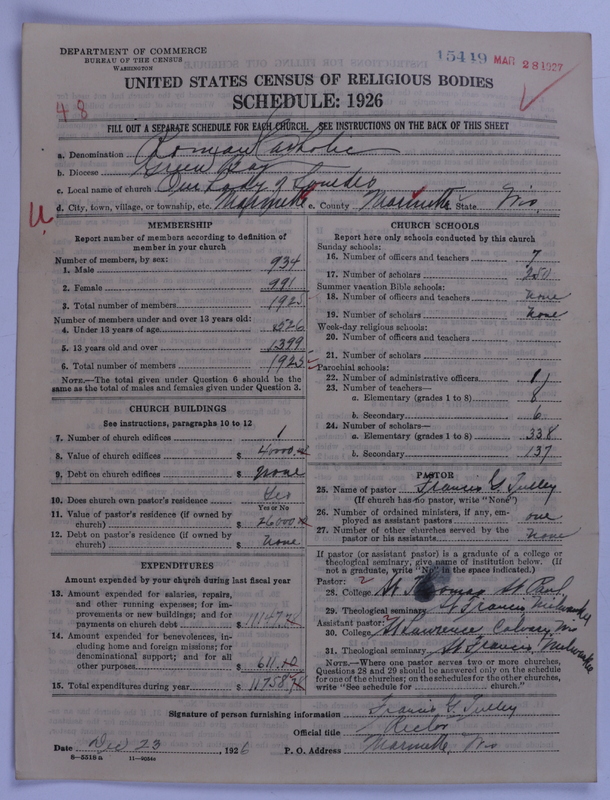 DEPARTMENT OF COMMERCE
BUREAU OF THE CENSUS
WASHINGTON
15419 MAR 28 1927
UNITED STATES CENSUS OF RELIGIOUS BODIES
SCHEDULE: 1926
48
FILL OUT A SEPARATE SCHEDULE FOR EACH CHURCH. SEE INSTRUCTIONS ON THE BACK OF THIS SHEET
a. Denomination Roman Catholic
b. Diocese Green Bay
c. Local name of church Our Lady of Lourdes
d. City, town, village, or township, etc. Marinette e. County Marinette State Wis.
MEMBERSHIP
Report number of members according to definition of member in your church
Number of members, by sex:
1. Male 934
2. Female 991
3. Total number of members 1925
Number of members under and over 13 years old:
4. Under 13 years of age 526
5. 13 years old and over 1399
6. Total number of members 1925
NOTE.—The total given under Question 6 should be the same as the total of males and females given under Question 3.
CHURCH BUILDINGS
See instructions, paragraphs 10 to 12
7. Number of church edifices 1
8. Value of church edifices $ 40000.00
9. Debt on church edifices $ none
10. Does church own pastor's residence Yes
Yes or No
11. Value of pastor's residence (if owned by church) $ 26000.00
12. Debt on pastor's residence (if owned by church) $ none
EXPENDITURES
Amount expended by your church during last fiscal year
13. Amount expended for salaries, repairs, and other running expenses; for improvements or new buildings; and for payments on church debt $ 11147.78
14. Amount expended for benevolences, including home and foreign missions; for denominational support; and for all other purposes $ 611.00
15. Total expenditures during year $ 11758.78
CHURCH SCHOOLS
Report here only schools conducted by this church
Sunday schools:
16. Number of officers and teachers 7
17. Number of scholars 250
Summer vacation Bible schools:
18. Number of officers and teachers none
19. Number of scholars none
Week-day religious schools:
20. Number of officers and teachers
21. Number of scholars
Parochial schools:
22. Number of administrative officers 1
23. Number of teachers—
a. Elementary (grades 1 to 8) 8
b. Secondary 6
24. Number of scholars—
a. Elementary (grades 1 to 8) 338
b. Secondary 137
PASTOR
25. Name of pastor Francis G.
(If church has no pastor, write "None")
26. Number of ordained ministers, if any, employed as assistant pastors one
27. Number of other churches served by the pastor or his assistants none
If pastor (or assistant pastor) is a graduate of a college or theological seminary, give name of institution below. (If not a graduate, write "No" in the space indicated.)
Pastor: 2
28. College St Thomas St Paul
29. Theological seminary St Francis Milwaukee
Assistant pastor: 2
30. College St Lawrence
31. Theological seminary St Francis Milwaukee
NOTE.—Where one pastor serves two or more churches, Questions 28 and 29 should be answered only on the schedule for one of the churches; on the schedules for the other churches, write "See schedule for church."
Signature of person furnishing information Francis G.
Official title Rector
Date Dec 23, 1926 P. O. Address Marinette, Wis
8—5518 a 11—9634